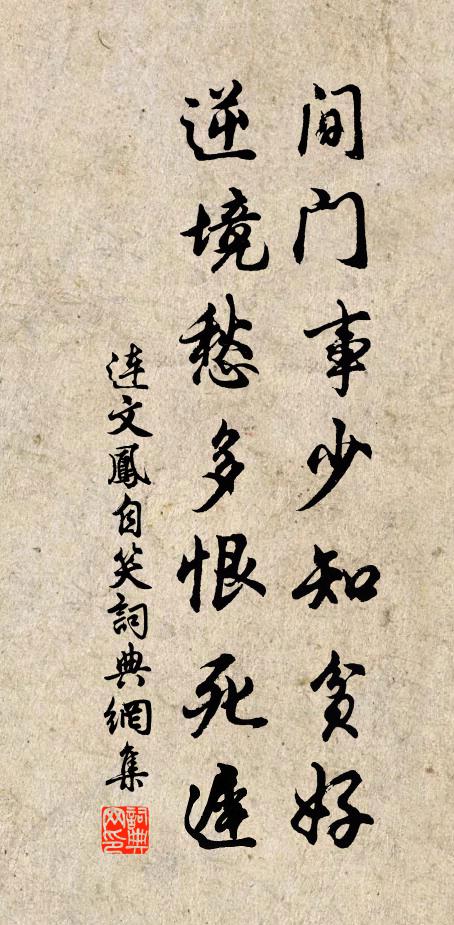 间门事少知贫好
逆境愁多恨死迟
连文凤自笑词典网集
词典网印